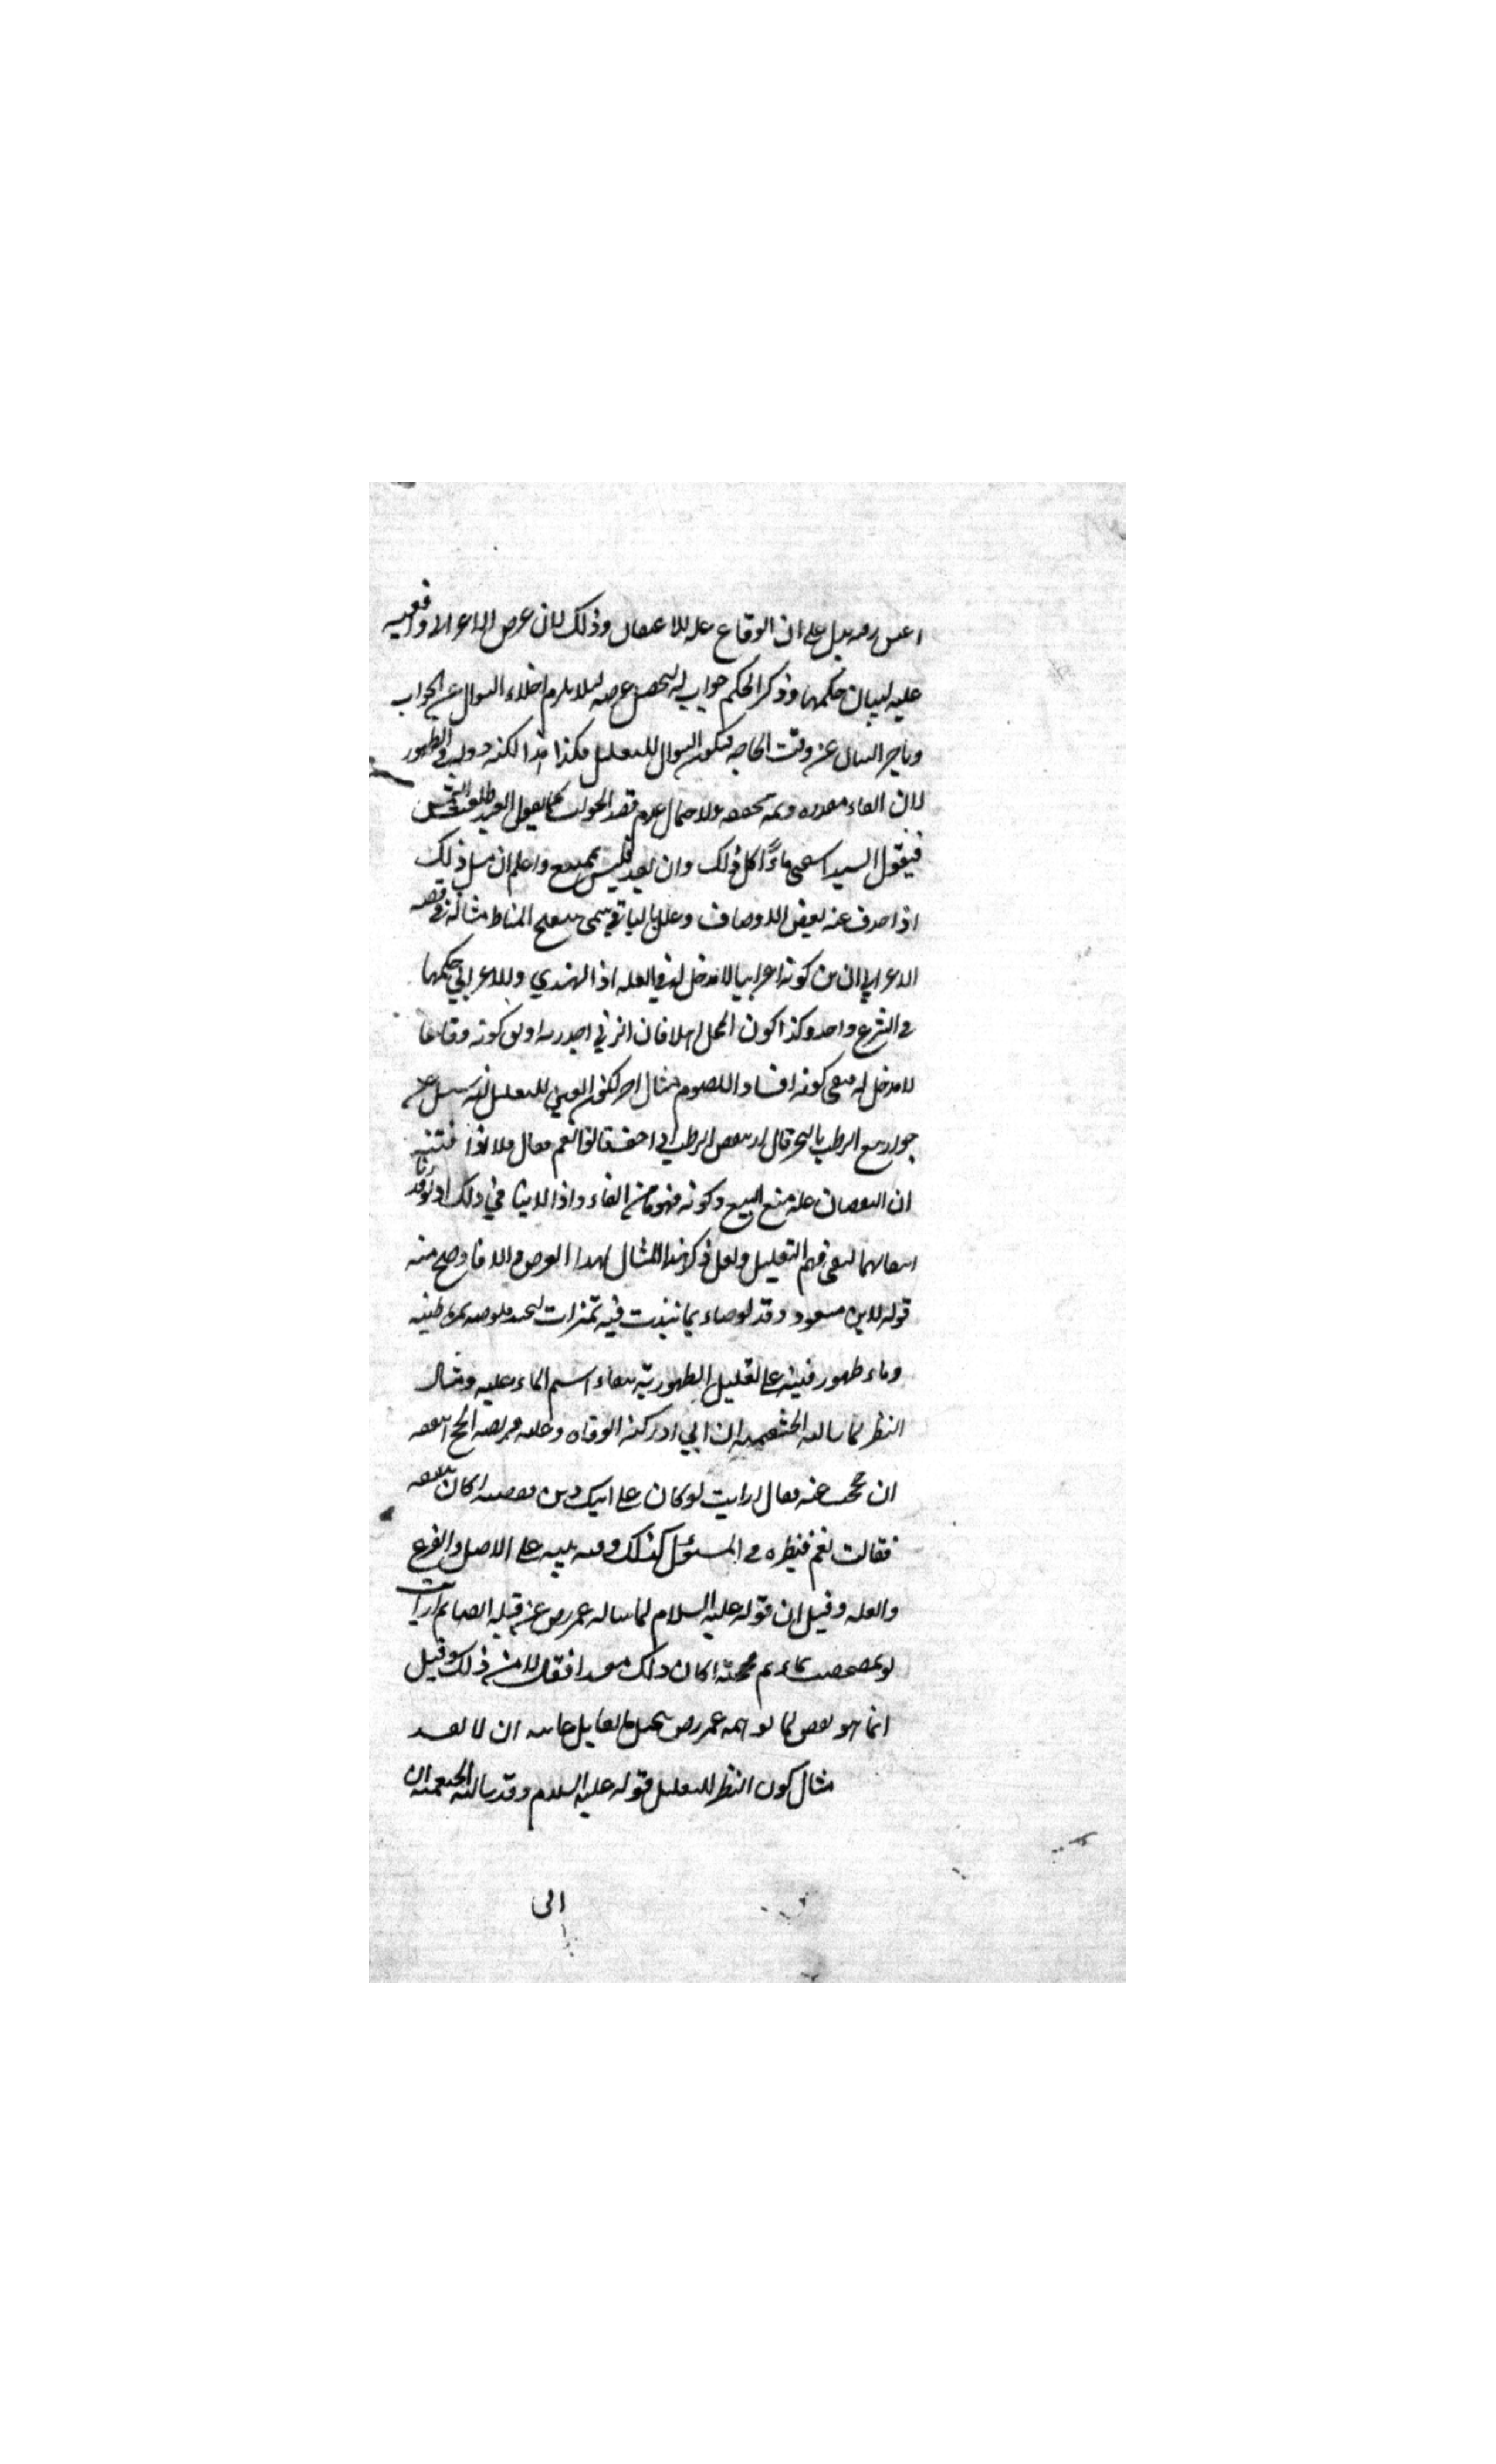 اعتق رقبة يدل على ان الوقاع علة للاعتاق وذلك لان غرض الاعرابي واقعيه
عليه لبيان حكمها وذكر الحكم جواب له ليحصل غرضه لئلا يلزم اخلاء السوال عن الجواب
وتاخير البيان عن وقت الحاجه فيكون السوال للتعليل فكذا هذا لكنه دونه في الظهور
لان الفاء مقدره وثمه محققه ولاحتمال عدم قصد الجواب كما يقول العبد طلعت الشمس
فيقول السيد اسقنى ماءً اكل ذلك وان بعد فليس بممتنع واعلم ان مثل ذلك
اذا حذف عنه بعض الاوصاف وعلل بالباقي سمى تنقيح المناط مثاله في قصه
الاعرابي ان من كونه اعرابيا لا مدخل له في العله اذ الهندي وللاعرابي حكمهما
في الشرع واحد وكذا كون المحل اهلا فان الزنى اجدر به اولى كونه وقاعا
لا مدخل له فبقى كونه افسادا للصوم مثال اخر لكون العين للتعليل انه سئل عن
جواز بيع الرطب بالتمر فقال اينقص الرطب اذا جف قالوا نعم فقال فلا اذا فنبه
ان النقصان علة منع البيع وكونه مفهوما من الفاء واذا لا ينافي ذلك اذ لو قدرنا
انتفاءهما لبقى فهم التعليل ولعل ذكر هذا المثال لهذا الغرض والا فاوضح منه
قوله لابن مسعود وقد توضاء بماء نبذت فيه تمرات تمرة طيبه
وماء طهور فنبه على تعليل الطهورية ببقاء اسم الماء عليه ومثال
النظر لما سالته الخثعميه ان ابي ادركته الوفاه وعليه فريضه الحج اينفعه
ان حججت عنه فقال ارايت لو كان على ابيك دين فقضيته اكان ينفعه
فقالت نعم فنظره في المسئول كذلك وفيه تنبيه على الاصل والفرع
والعله وقيل ان قوله عليه السلام لما ساله عمر رض عن قبله الصايم ارايت
لو تمضمضت بماء ثم مججته اكان ذلك مفسدا فقال لا من ذلك وقيل
انما هو نقض لما توهمه عمر رض ان لا يفسد
مثال كون النظر للتعليل قوله عليه السلام وقد سالته الخثعميه ان
ابى